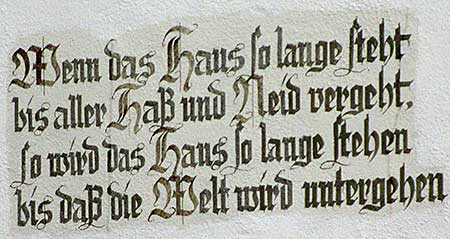 Wenn das Haus so lange steht
bis aller Haß und Neid vergeht,
so wird das Haus so lange stehen
bis daß die Welt wird untergehen